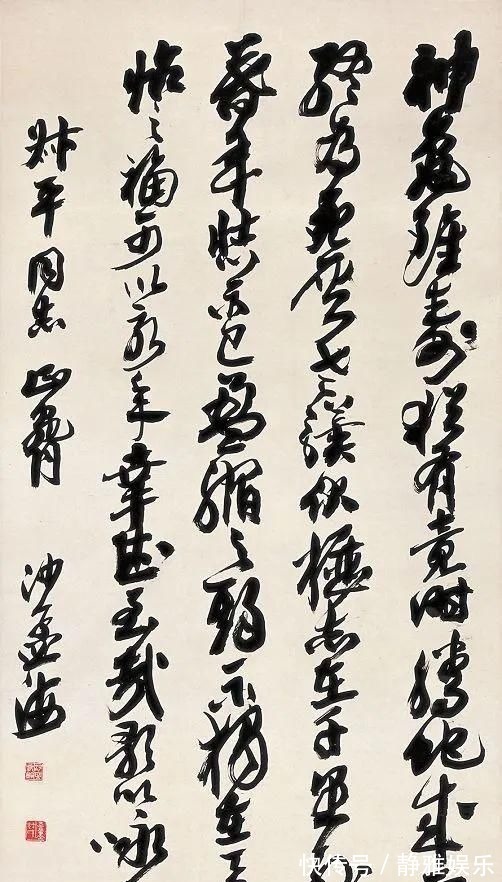 神龜雖壽猶有竟時騰蛇
終為灰老驥伏櫪志在千里
暮年壯心不已盈縮之期不獨在天
怡之福可以永年幸甚至哉歌以詠
平同志正腕 沙孟海
快传号/静雅娱乐